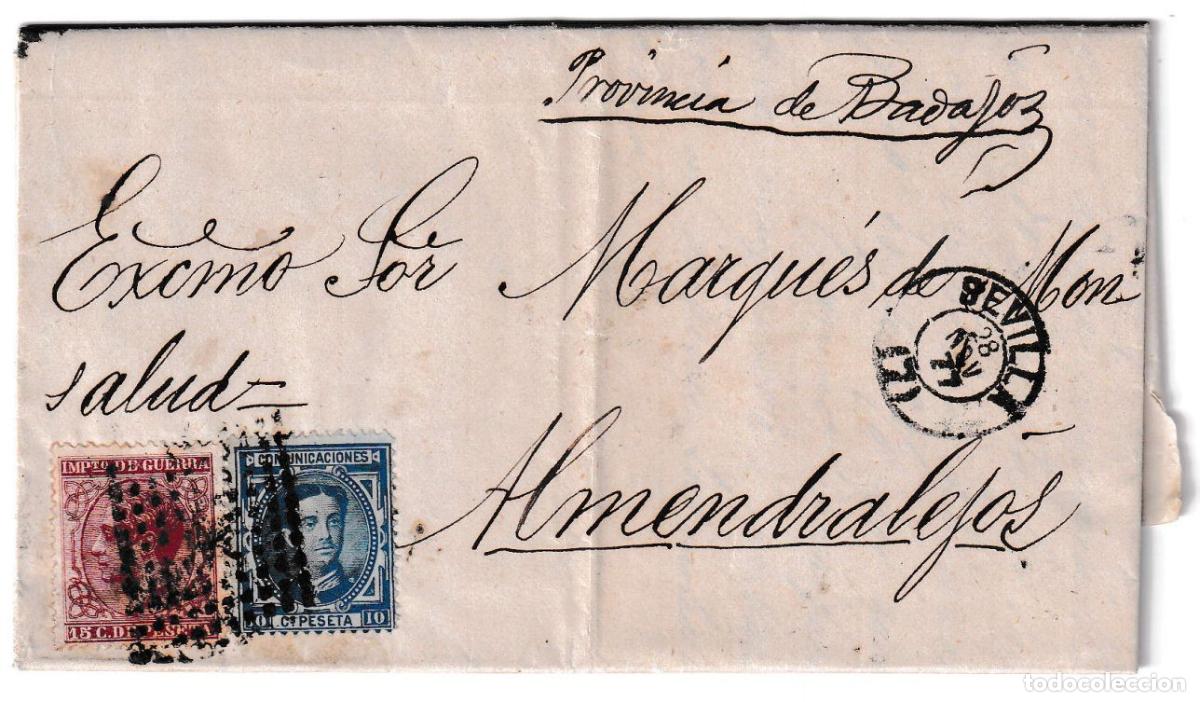 Provincia de Badajoz
Excmo Sor Marqués de Mon-
salud—
SEVILLA
28
NOV
77
Almendralejos
IMPTO DE GUERRA
15 C. DE PESETA
COMUNICACIONES
10 Cs PESETA 10
todocoleccion